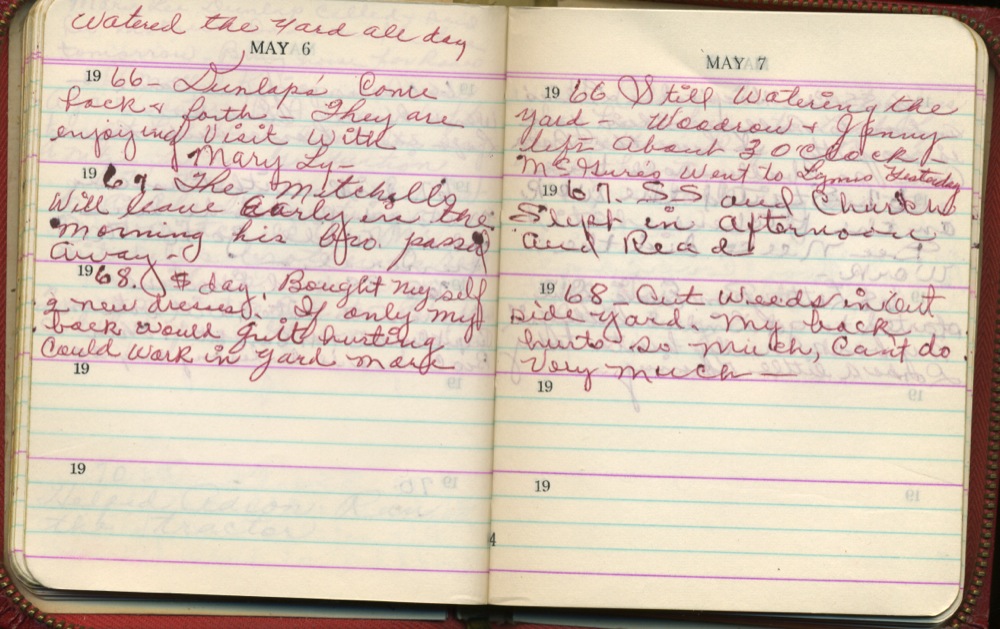 Watered the yard all day
MAY 6
1966 - Dunlap's Come
back & forth - They are
enjoying Visit With
Mary Ly-
1967. The Mitchells
Will leave early in the
morning his bro. passed
away -
1968. $ day. Bought my self
2 new dresses. If only my
back would quit hurting
Could work in yard more
19
19
4
MAY 7
1966 Still Watering the
yard - Woodrow & Jenny
left about 3 oclock -
McGuires Went to Lynns Yesterday
1967. SS and Church
Slept in afternoon
and Read
1968 - Cut Weeds in Out
side yard. My back
hurts so much, Can't do
Very much
19
19